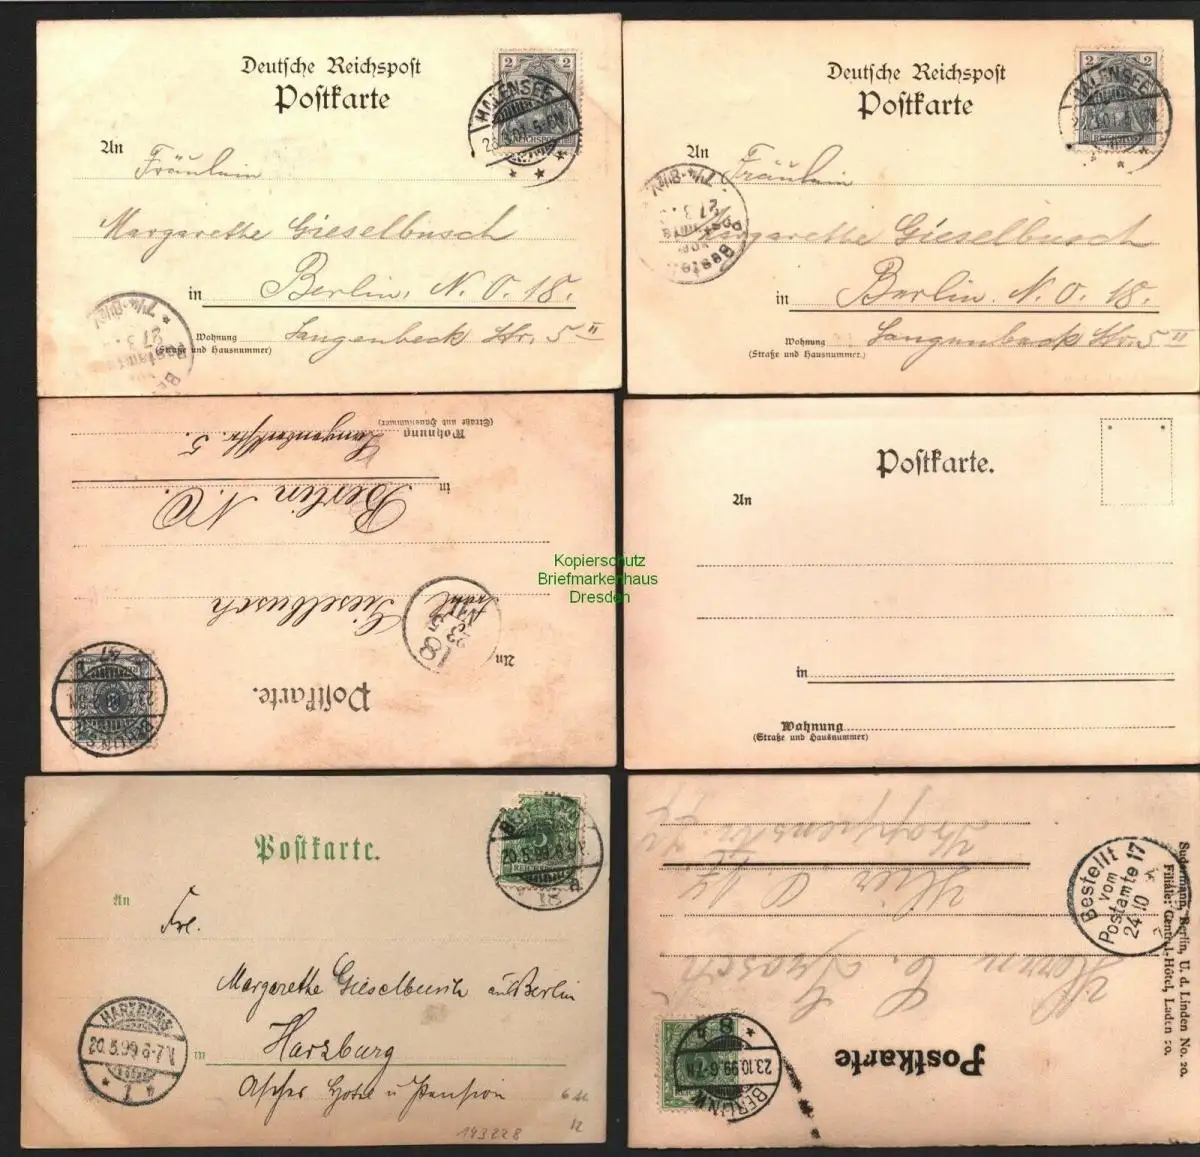 Deutsche Reichspost
Postkarte
2 2
HALENSEE
An
Fräulein
Margarethe Gieselbusch
in Berlin, N. O. 18.
Wohnung
(Straße und Hausnummer)
Langenbeck Str. 5 II
27 3
Deutsche Reichspost
Postkarte
2 2
HALENSEE
An
Fräulein
Margarethe Gieselbusch
in Berlin. N. O. 18.
Wohnung
(Straße und Hausnummer.)
Langenbeck Str. 5 II
Bestellt
vom
Postamte
27 3
7¼-8½V
Postkarte.
An
Gieselbusch
in Berlin N.O.
Wohnung
(Straße und Hausnummer)
Langenbeckstr. 5.
23
5
98
BERLIN
Postkarte.
An
in
Wohnung
(Straße und Hausnummer)
Kopierschutz
Briefmarkenhaus
Dresden
Postkarte.
An
Frl.
Margarethe Gieselbusch aus Berlin
in Harzburg
20.5.99
HARZBURG
20.5.99 6-7N
1
143228
Postkarte
Herrn C.
Hier
BERLIN
23.10.99 6-7N
Bestellt
vom
Postamte 17
24 10
Sudermann, Berlin, U. d. Linden No. 20.
Filiale: Central-Hôtel, Laden 20.